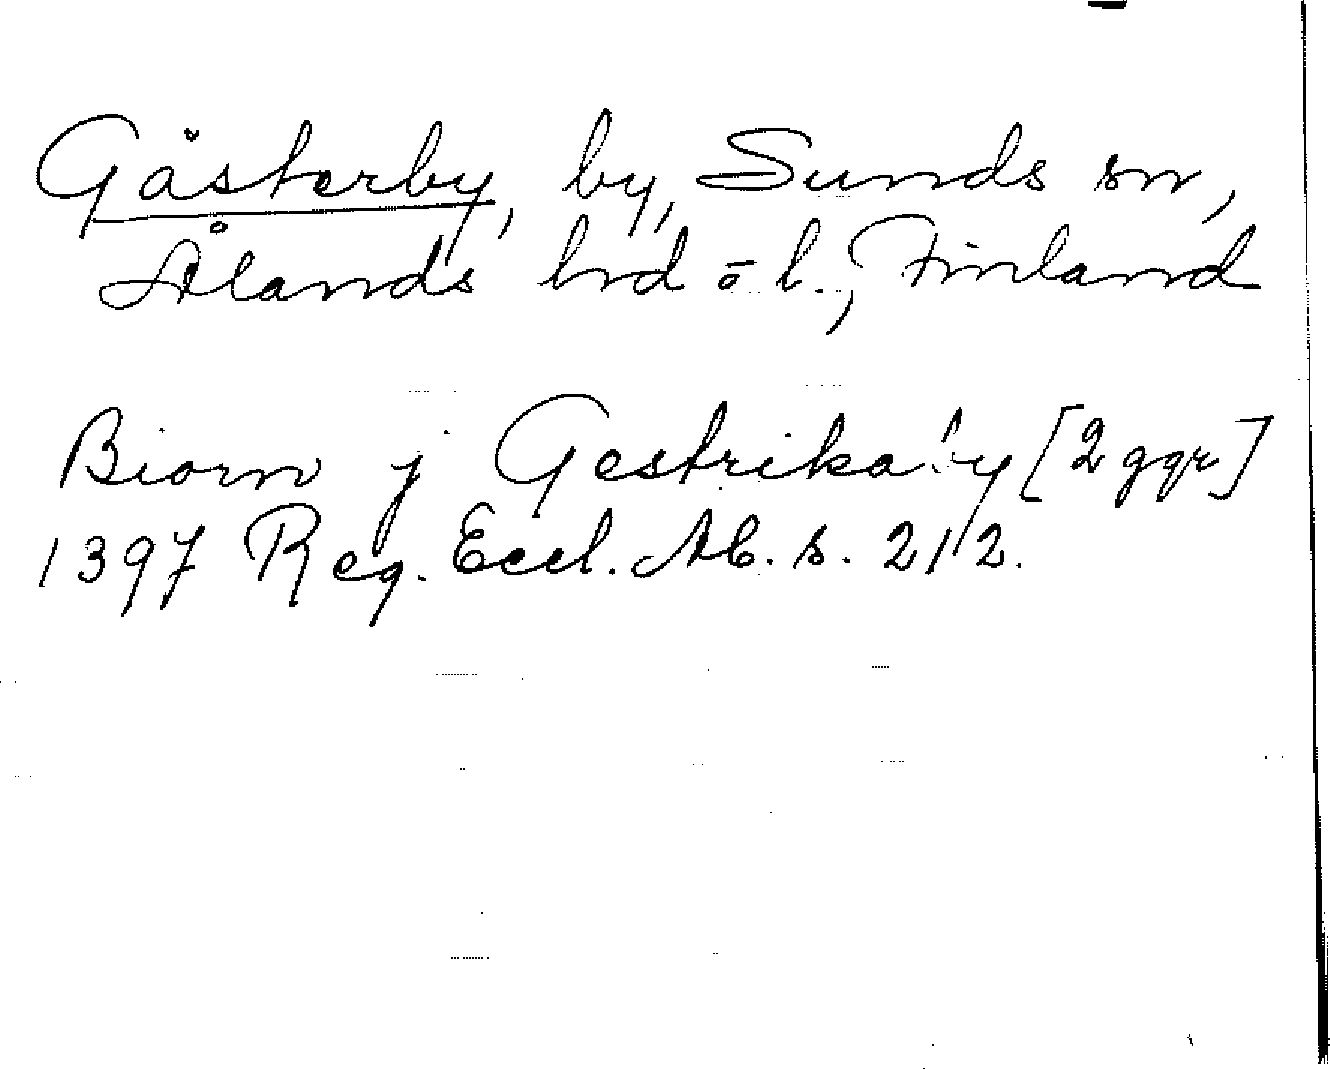 Gästerby, by, Sunds sn,
Ålands hd o l., Finland
Biorn j Gestrikaby [2 ggr]
1397 Reg. Eccl. Ab. s. 212.